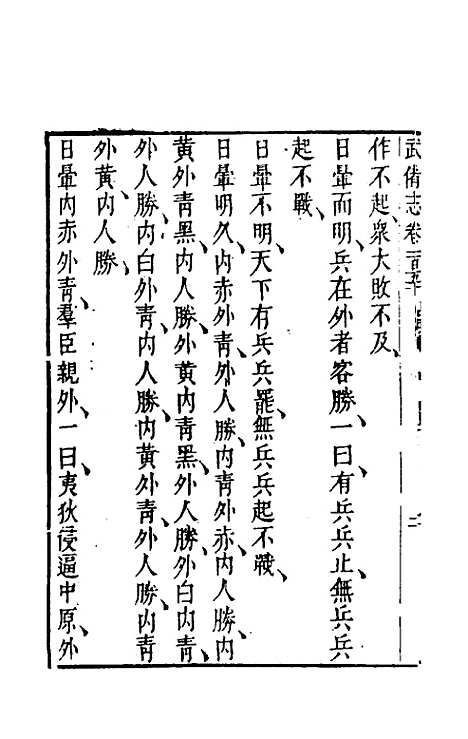 武備志卷一百五十 二
作不起、衆大敗不及、
日暈而明、兵在外者客勝、一曰、有兵兵止、無兵兵
起不戰、
日暈不明、天下有兵兵罷、無兵兵起不戰、
日暈明久、内赤外青、外人勝、内青外赤、内人勝、内
黄外青黑、内人勝、外黄内青黑、外人勝、外白内青、
外人勝、内白外青、内人勝、内黄外青、外人勝、内青
外黄、内人勝、
日暈内赤外青、羣臣親外、一曰、夷狄侵逼中原、外